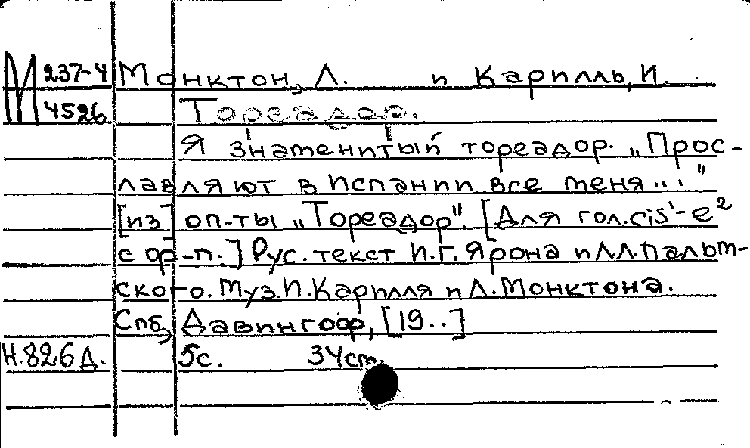 М 237-4 Монктон, Л. и Карилль, И.
4526 Тореадор.
Я знаменитый тореадор. „Прос-
лавляют в Испании все меня..."
[из] оп-ты „Тореадор". [Для гол. cis¹-e²
с ф-п.] Рус. текст И.Г. Ярона и Л.Л. Пальм-
ского. Муз. И. Карилля и Л. Монктона.
Спб, Давингоф, [19..]
Н.826Д. 5с. 34см.